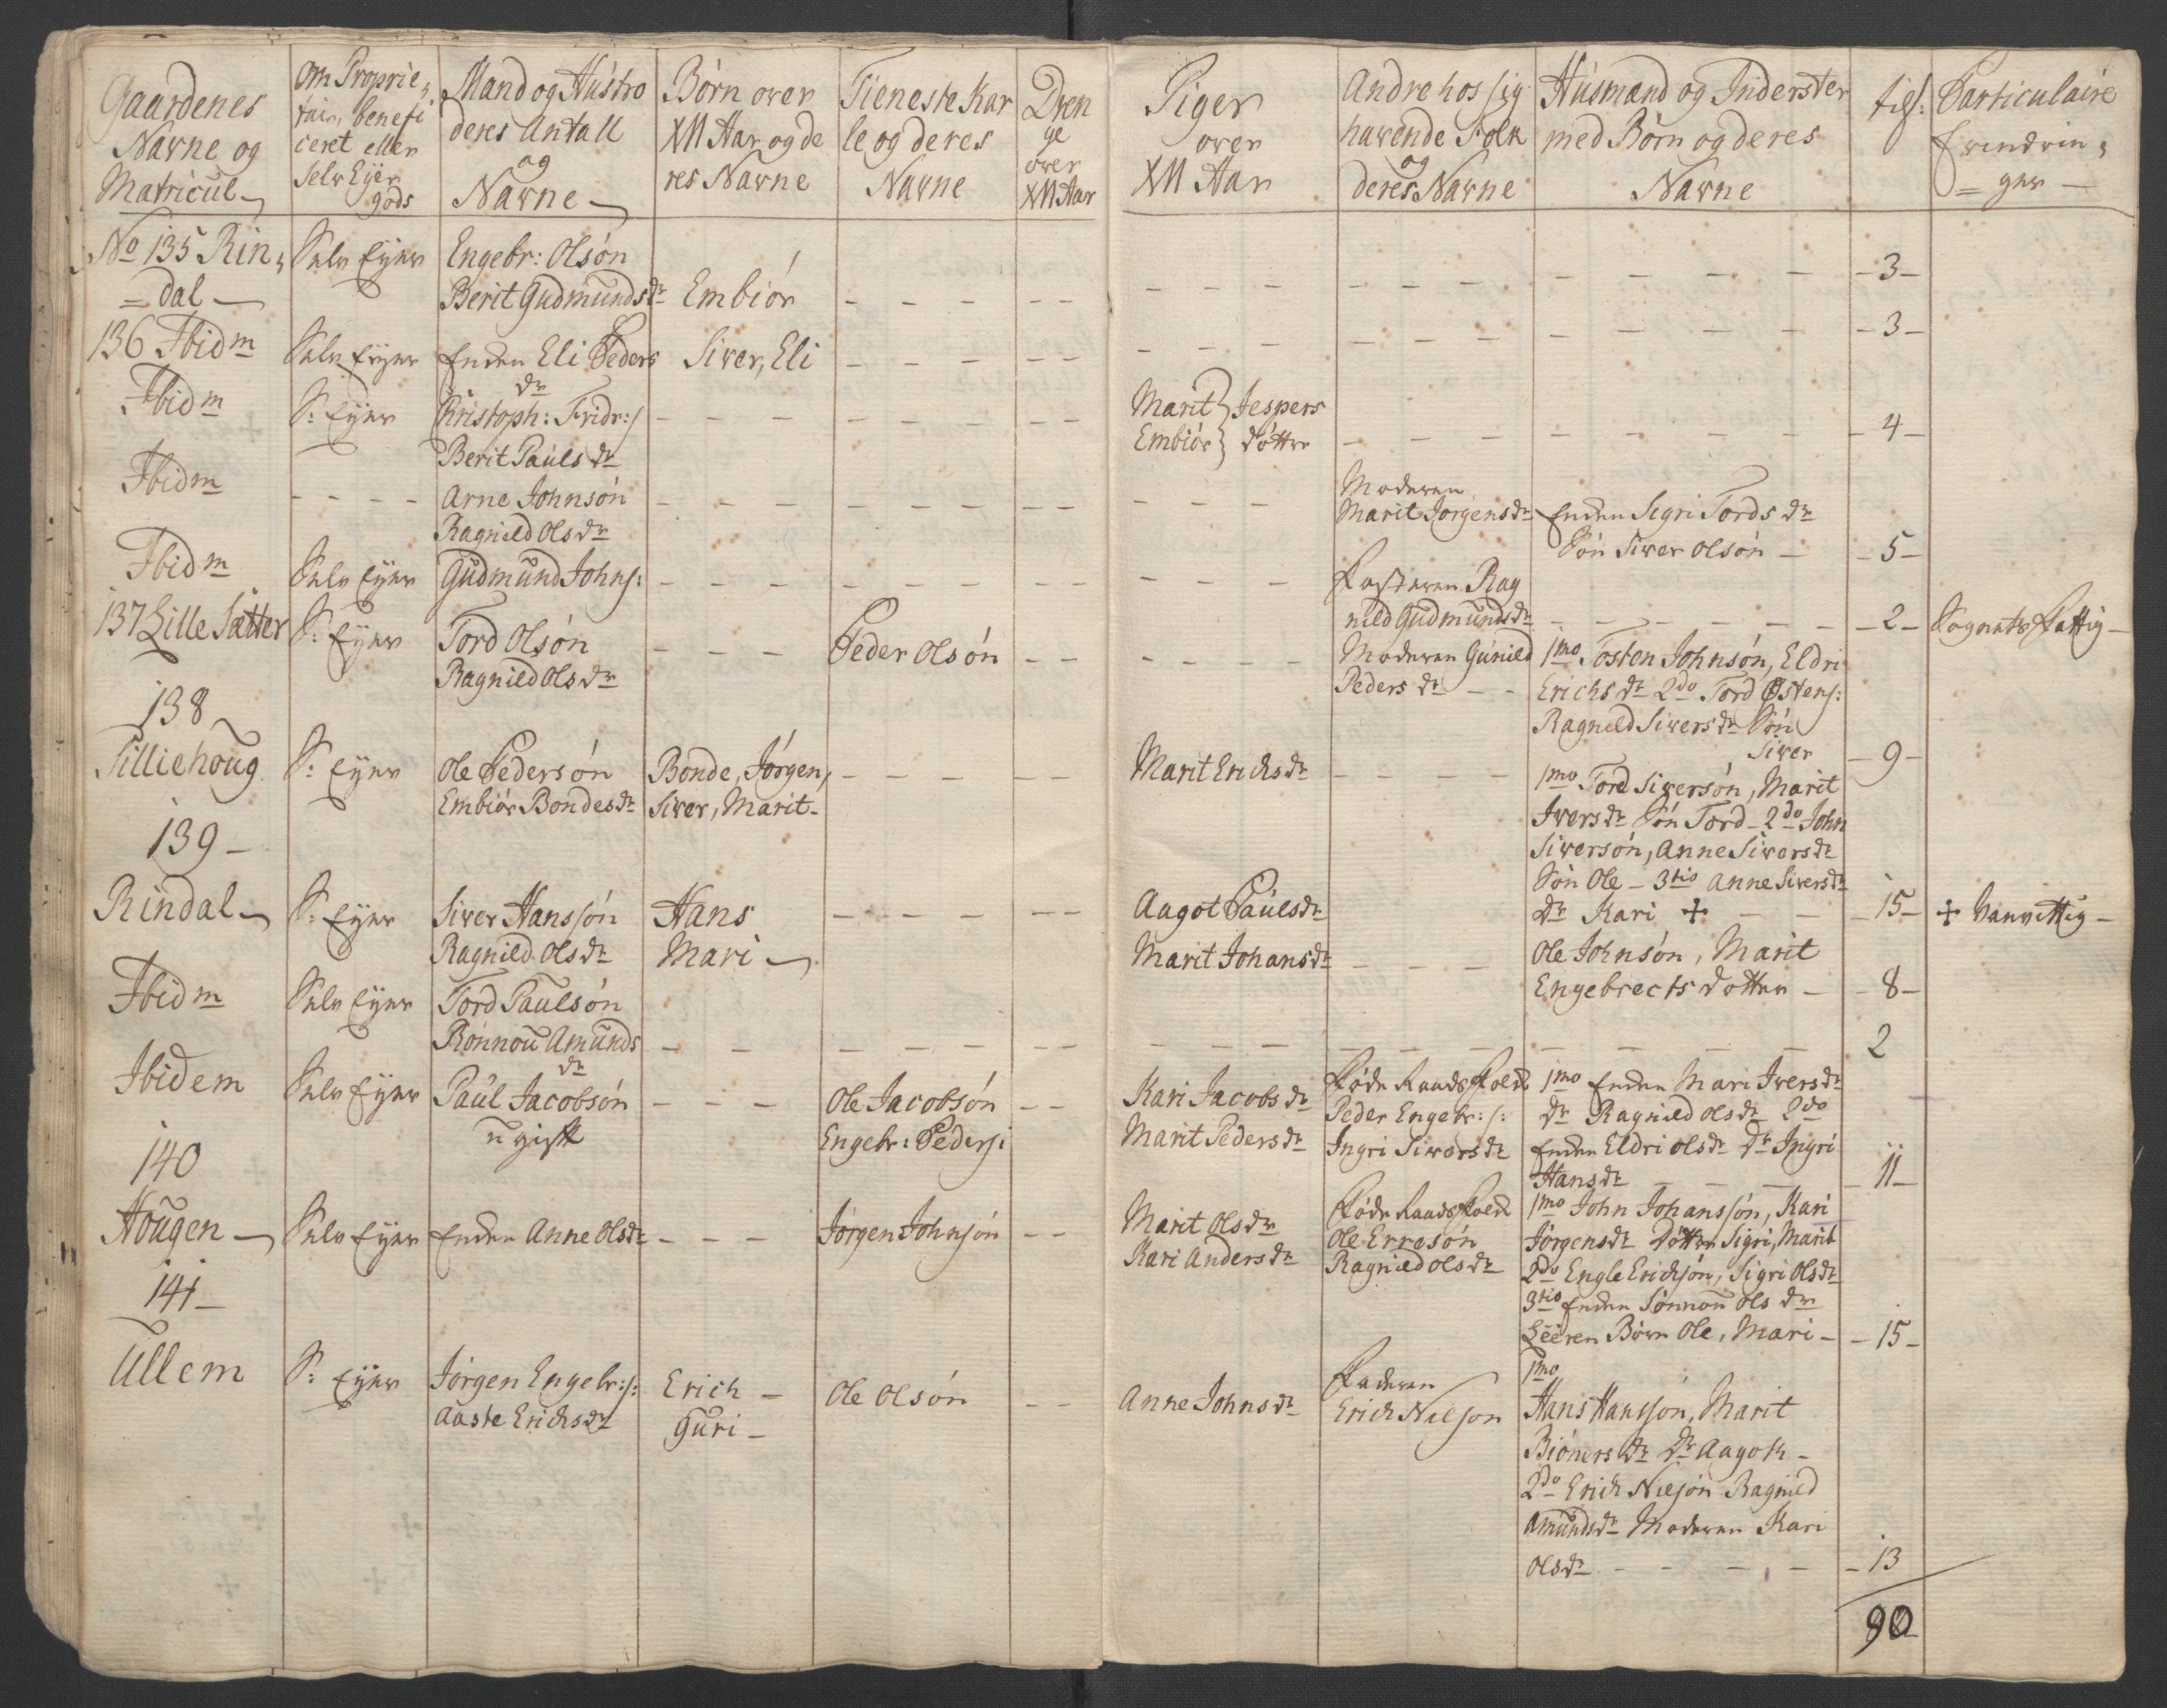 Gaardenes
Navne og
Matricul
Om Proprie,
tair, benefi
ceret eller
Selv Eÿer
gods
Mand og Hustro
deres Antall
og
Navne
Børn over
XII Aar og de
res Navne
Tieneste Kar
le og deres
Navne
Dren
ge
over
XII Aar
Piger
over
XII Aar
Andre hos sig
havende Folk
og
deres Navne
Husmænd og Inderster
med Børn og deres
Navne
tils:
Particulaire
Erindrin,
= ger —
No 135 Rin,
= dal —
Selv Eÿer
Engebr: Olsøn
Berit Gudmunds dr
Embiør
- 3 -
136 Ibidm
Selv Eÿer
Enken Eli Peders
dr
Siver, Eli
- 3 -
Ibidm
S: Eÿer
Christoph: Fridr:s
Berit Pauls dr
Marit } Jespers
Embiør } døttre
- 4 -
Ibidm
Arne Johnsøn
Ragnild Ols dr
Moderen
Marit Jørgens dr
Enken Sigri Tords dr
Søn Siver Olsøn —
- 5 -
Ibidm
Selv Eÿer
Gudmund Johns:
Fasteren Rag
nild Gudmunds dr
- 2 -
Sognets Fattig —
137 Lille Sætter
S: Eÿer
Tord Olsøn
Ragnild Ols dr
Peder Olsøn
Moderen Gunild
Peders dr - -
1mo Tosten Johnsøn, Eldri
Erichs dr 2do Tord Østens:
Ragnild Sivers dr Søn
Siver
- 9 -
138
Lilliehoug
S: Eÿer
Ole Pedersøn
Embiør Bondes dr
Bonde, Jørgen,
Siver, Marit -
Marit Erichs dr
1mo Tord Siversøn, Marit
Ivers dr Søn Tord - 2do John
Siversøn, Anne Sivers dr
Søn Ole - 3tio Anne Sivers dr
dr Kari +
- 15 -
+ Vanvittig —
139 -
Rindal
S: Eÿer
Siver Hanssøn
Ragnild Ols dr
Hans
Mari
Aagot Pauls dr
Marit Johans dr
Ole Johnsøn, Marit
Engebrects dotter —
- 8 -
Ibidm
Selv Eÿer
Tord Paulsøn
Rønnou Amunds
dr
2
Ibidem
Selv Eÿer
Paul Jacobsøn
ugift
Ole Jacobsøn
Engebr: Peders:
Kari Jacobs dr
Marit Peders dr
Føde Raads Folk
Peder Engebr:s:
Ingri Sivers dr
1mo Enken Mari Ivers dr
dr Ragnild Ols dr 2do
Enken Eldri Ols dr dr Ingri
Hans dr
- 11 -
140
Hougen
Selv Eÿer
Enken Anne Ols dr
Jørgen Johnsøn
Marit Ols dr
Kari Anders dr
Føde Raads Folk
Ole Erresøn
Ragnild Ols dr
1mo John Johanssøn, Kari
Jørgens dr Døttre Sigri, Marit
2do Engle Erichsøn, Sigri Ols dr
3tio Enken Sønnou Ols dr
Børn Ole, Mari -
- 15 -
141 -
Ullem
S: Eÿer
Jørgen Engebr:s:
Aaste Erichs dr
Erich —
Guri —
Ole Olsøn
Anne Johns dr
Faderen
Erich Nilsøn
1mo
Hans Hanssøn, Marit
Biøners dr dr Aagoth -
2do Erich Nilsøn Ragnild
Amunds dr Moderen Kari
Ols dr
- 13
90